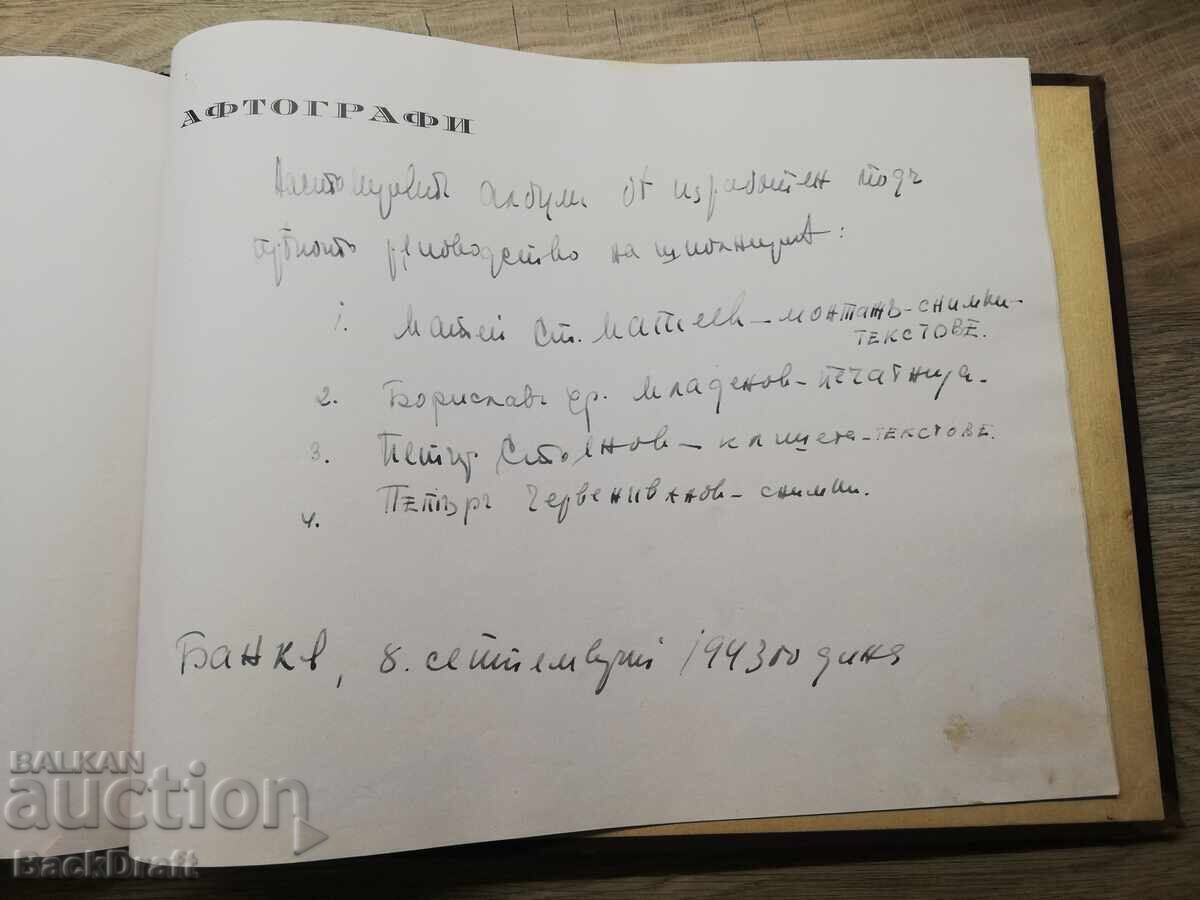 АФТОГРАФИ
албум изработен подъ
ръководство на школниците:
1. Матей Ст. Матеев – монтажъ – снимки –
ТЕКСТОВЕ.
2. Бориславъ Хр. Младенов – печатница.
3. Петър Стоянов – клишета – ТЕКСТОВЕ.
4. Петъръ Червениванов – снимки.
8. септемврий 1943 година
BALKAN
auction
BackDraft